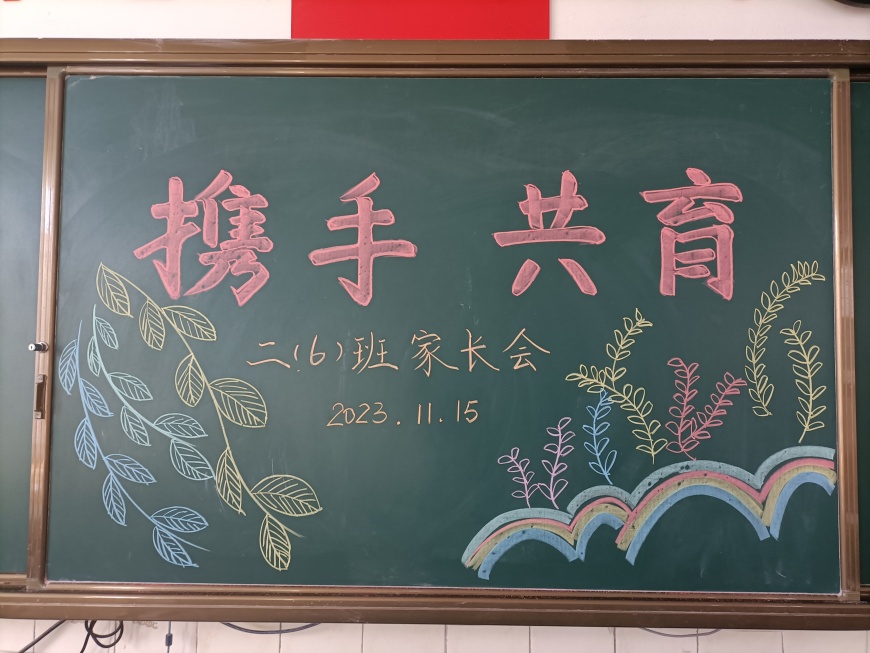 携手 共育
二(6)班家长会
2023.11.15